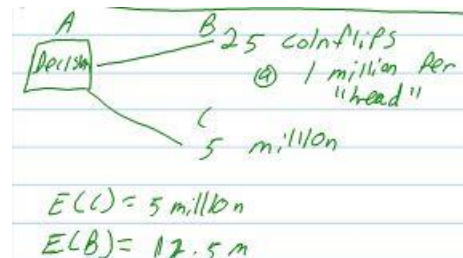 A
B
Decision
25 coinflips
@ 1 million Per
"head"
C
5 million
E(C) = 5 million
E(B) = 12.5 m